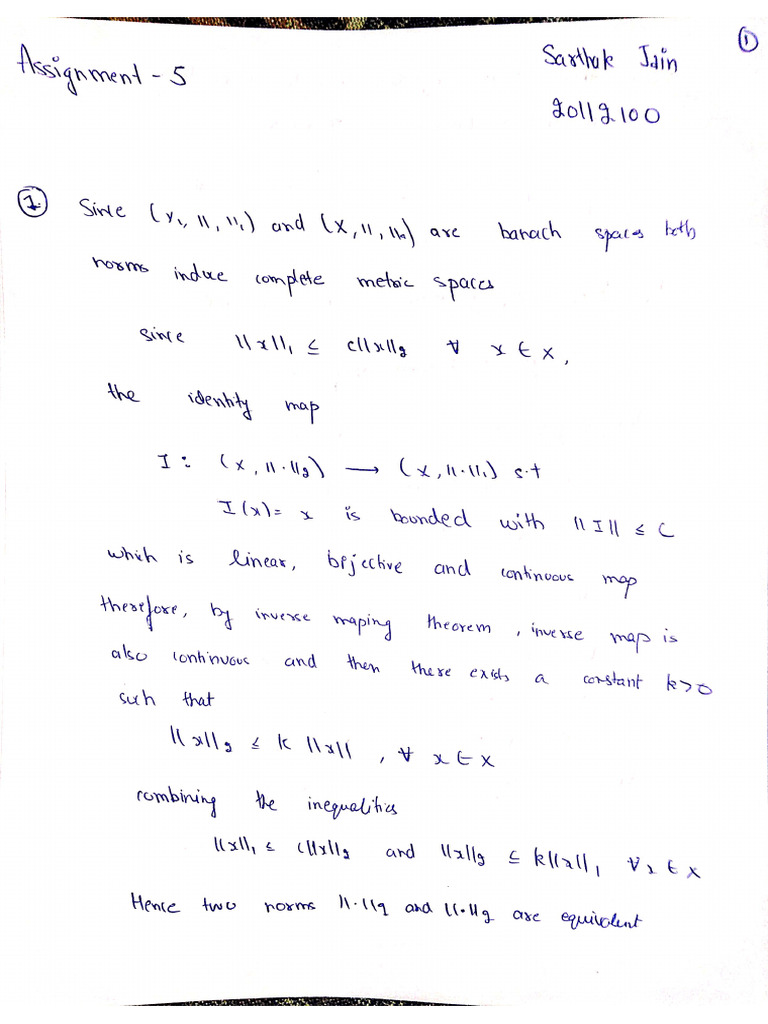 ①
Assignment - 5
Sarthak Jain
20112100
① Since (X, ||, ||₁) and (X, ||, ||₂) are banach spaces both
norms induce complete metric spaces
since ||x||₁ ≤ c||x||₂ ∀ x ∈ X,
the identity map
I : (X, ||·||₂) → (X, ||·||₁) s.t
I(x) = x is bounded with ||I|| ≤ C
which is linear, bijective and continuous map
therefore, by inverse maping theorem, inverse map is
also continuous and then there exists a constant k>0
such that
||x||₂ ≤ k ||x|| , ∀ x ∈ X
combining the inequalities
||x||₁ ≤ c||x||₂ and ||x||₂ ≤ k||x||₁ ∀ x ∈ X
Hence two norms ||·||₁ and ||·||₂ are equivalent